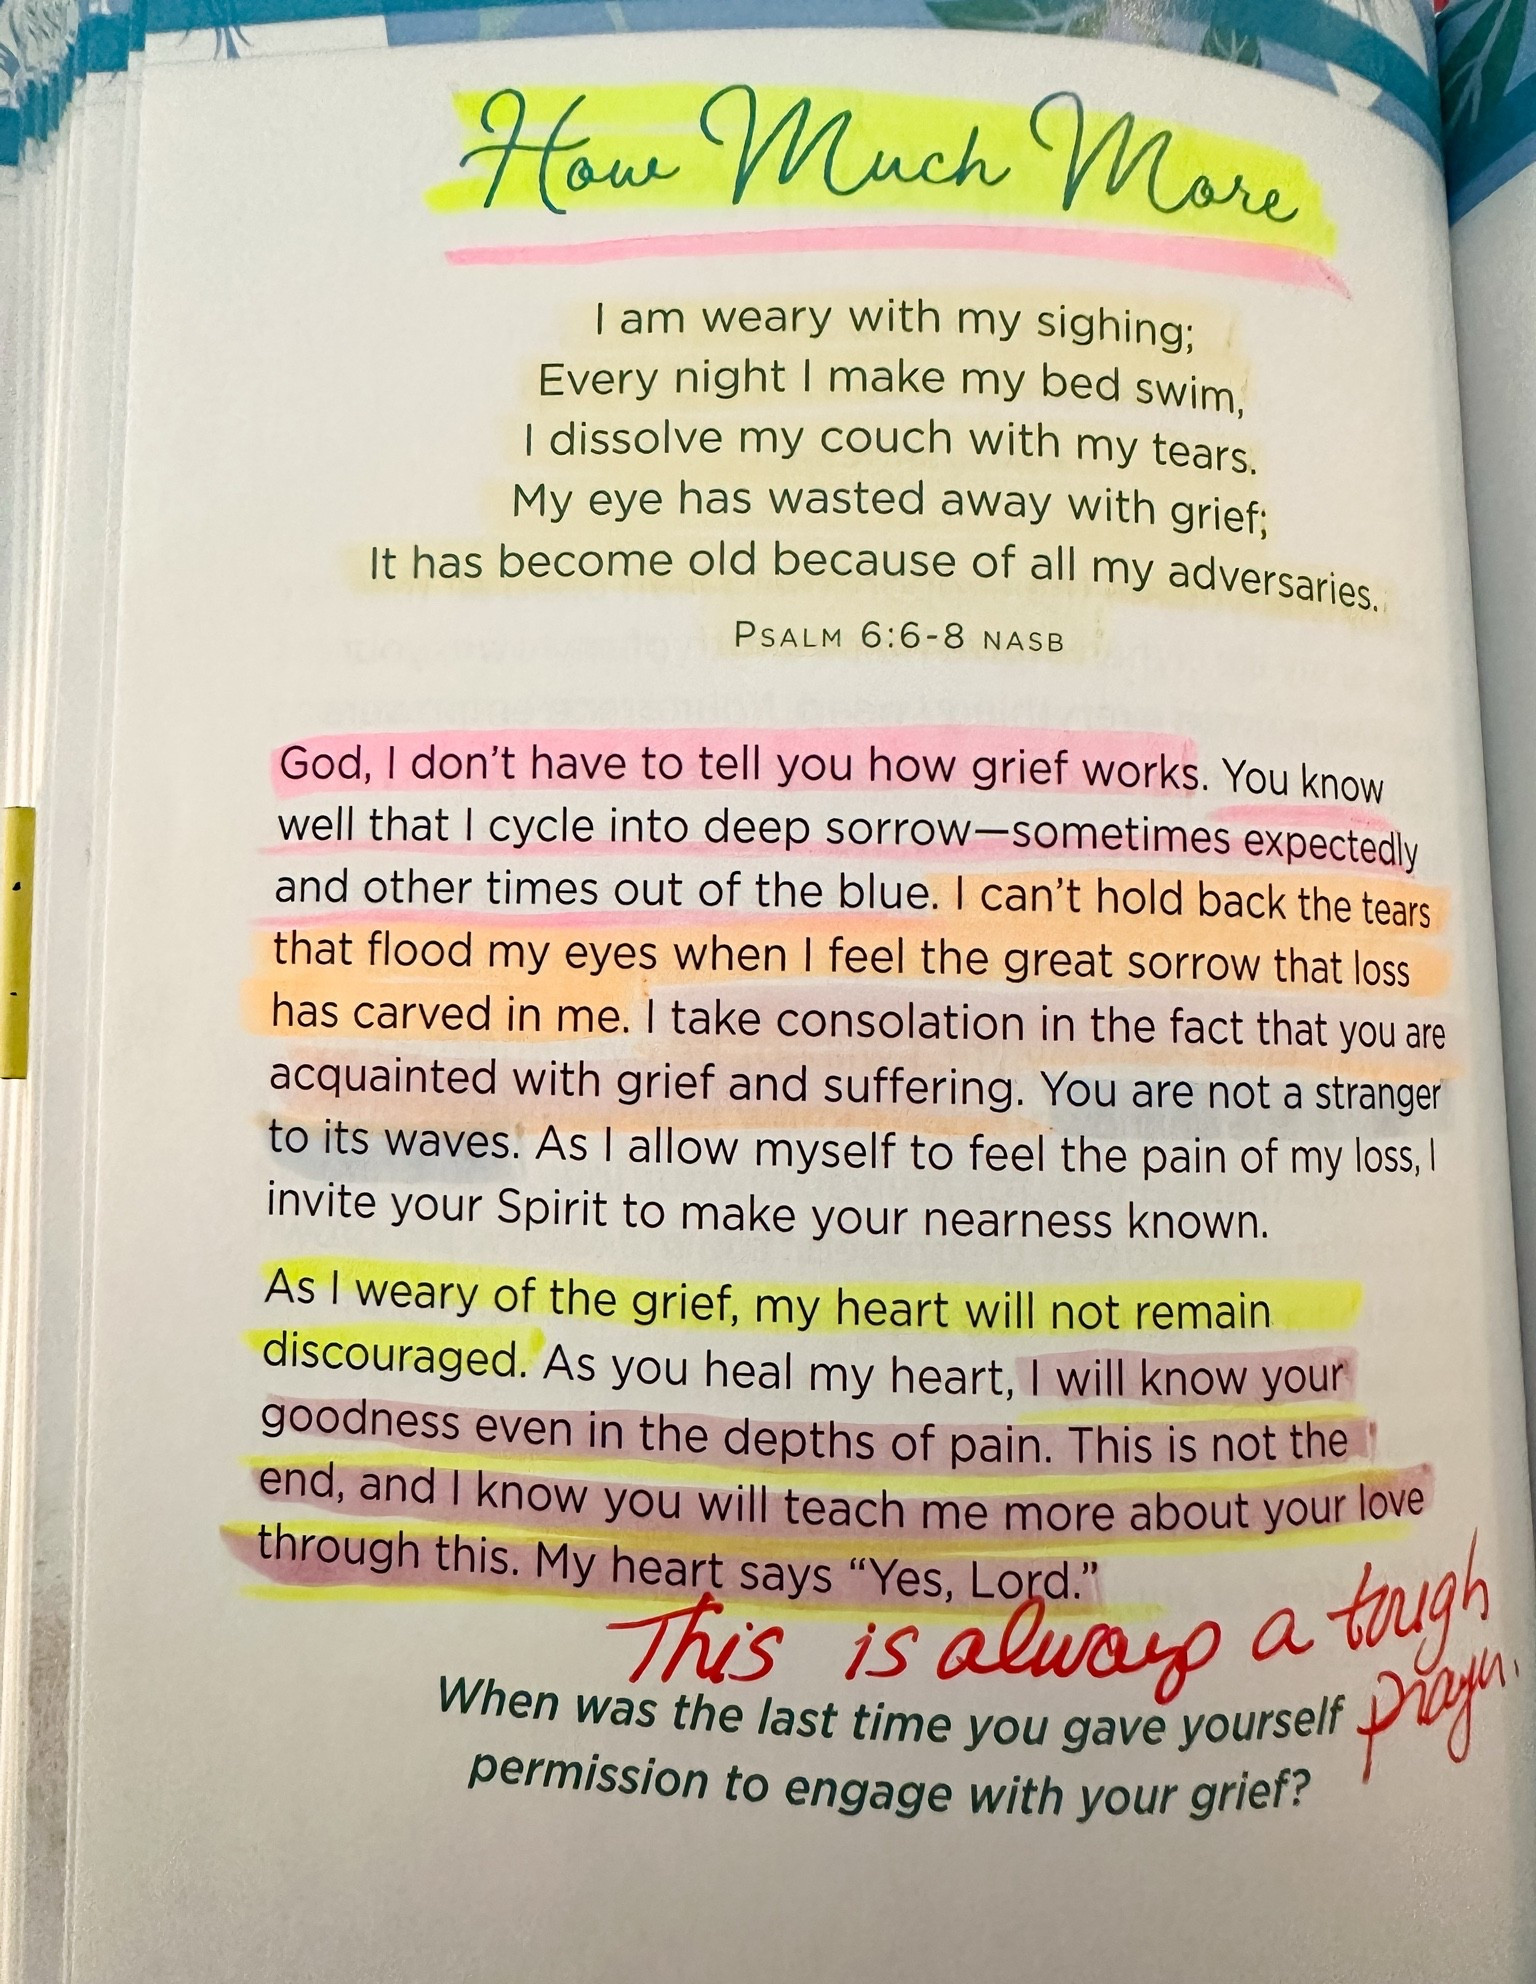 How Much More
I am weary with my sighing;
Every night I make my bed swim,
I dissolve my couch with my tears.
My eye has wasted away with grief;
It has become old because of all my adversaries.
PSALM 6:6-8 NASB
God, I don't have to tell you how grief works. You know
well that I cycle into deep sorrow—sometimes expectedly
and other times out of the blue. I can't hold back the tears
that flood my eyes when I feel the great sorrow that loss
has carved in me. I take consolation in the fact that you are
acquainted with grief and suffering. You are not a stranger
to its waves. As I allow myself to feel the pain of my loss, I
invite your Spirit to make your nearness known.
As I weary of the grief, my heart will not remain
discouraged. As you heal my heart, I will know your
goodness even in the depths of pain. This is not the
end, and I know you will teach me more about your love
through this. My heart says “Yes, Lord.”
This is always a tough
prayer.
When was the last time you gave yourself
permission to engage with your grief?